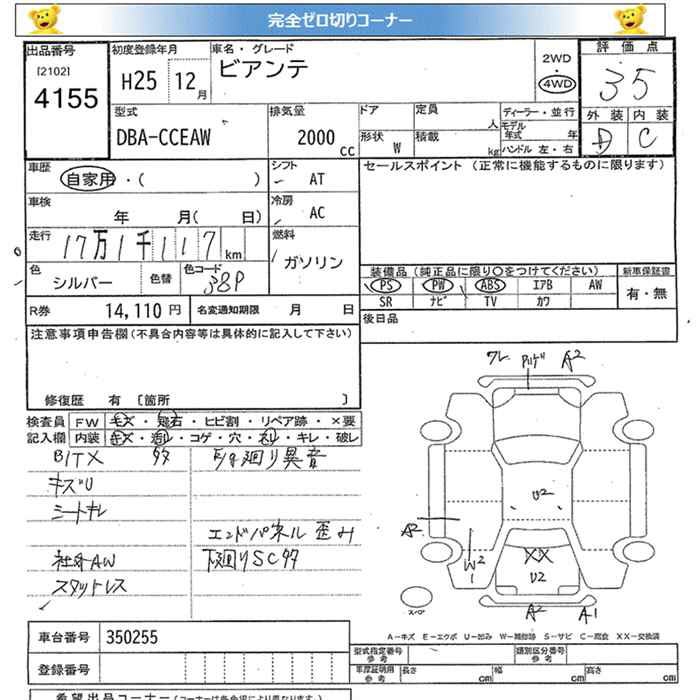 完全ゼロ切りコーナー
出品番号 初度登録年月 車名・グレード 2WD 評価点
[2102] 4155 H25 12月 ビアンテ 4WD 35
外装 内装
D C
型式 排気量 ドア 定員 人 ディーラー・並行
DBA-CCEAW 2000 cc 形状 W 積載 kg モデル年式 年 ハンドル 左・右
車歴 自家用・( ) シフト AT セールスポイント (正常に機能するものに限ります)
車検 年 月( 日) 冷房 AC
走行 17万1千117km 燃料 ガソリン
色 シルバー 色替 色コード 38P
装備品 (純正品に限り○をつけてください) 新車保証書
PS PW ABS エアB AW 有・無
SR ナビ TV カワ
R券 14,110円 名変通知期限 月 日 後日品
注意事項申告欄(不具合内容等は具体的に記入して下さい)
修復歴 有 〔箇所 〕
検査員 FW キズ・飛石・ヒビ割・リペア跡・×要
記入欄 内装 キズ・汚レ・コゲ・穴・スレ・キレ・破レ
廻り異音
キズU
シートキレ
エンドパネル 歪み
社外AW 下廻りSCサ
スタットレス
A2
U2
A2
W2
XX
U2
スペア
A2 A1
A-キズ E-エクボ U-凹み W-補修跡 S-サビ C-腐食 XX-交換済
車台番号 350255 型式指定番号 参考 類別区分番号 参考
登録番号 車庫証明用 参考 長さ cm 幅 cm 高さ cm
希望出品コーナー